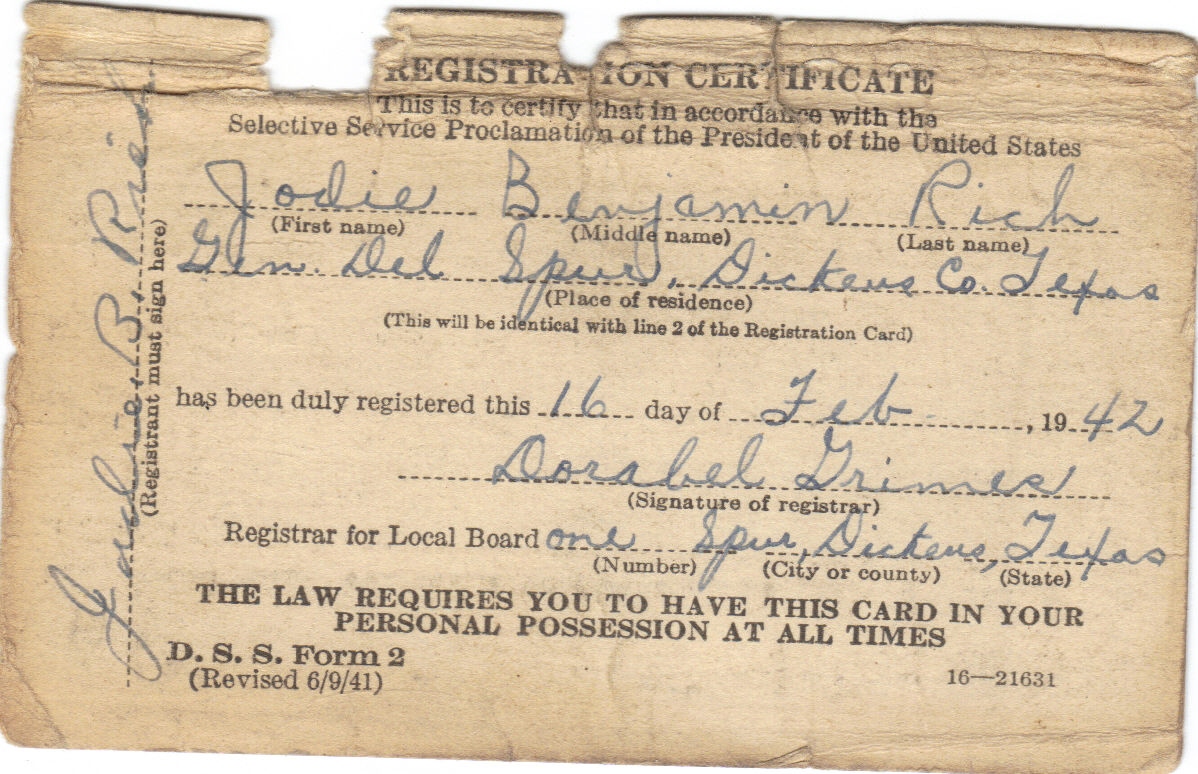 REGISTRATION CERTIFICATE
This is to certify that in accordance with the
Selective Service Proclamation of the President of the United States
Jodie Benjamin Rich
(First name) (Middle name) (Last name)
Gen. Del Spur, Dickens Co. Texas
(Place of residence)
(This will be identical with line 2 of the Registration Card)
has been duly registered this 16 day of Feb , 1942
Dorabel Grimes
(Signature of registrar)
Registrar for Local Board one Spur, Dickens, Texas
(Number) (City or county) (State)
THE LAW REQUIRES YOU TO HAVE THIS CARD IN YOUR
PERSONAL POSSESSION AT ALL TIMES
D. S. S. Form 2
(Revised 6/9/41) 16—21631
Jodie B. Rich
(Registrant must sign here)